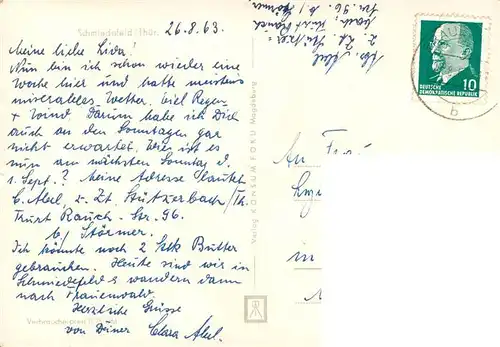 Schmiedefeld / Thür.
26.8.63.
Meine liebe Lisa!
Nun bin ich schon wieder eine
Woche hier und hatte meistens
miserables Wetter. viel Regen
+ Wind darum habe ich Dich
auch an den Sonntagen gar
nicht erwartet. Wie ist es
nun am nächsten Sonntag d.
1. Sept.? Meine Adresse lautet
C. Abel, z. Zt. Stützerbach/Th.
Kurt Rauch-Str. 96.
b/ Störmer.
Ich könnte noch 2 Stk Butter
gebrauchen. Heute sind wir in
Schmiedefeld & wandern dann
nach Frauenwald.
Herzliche Grüsse
von Deiner Clara Abel.
Verlag KONSUM FOKU Magdeburg
Abs. Abel
z. Zt. Stützer-
bach Kurt Rauch
Str. 96. b/
Störmer
DEUTSCHE
DEMOKRATISCHE REPUBLIK
10
b
An
in